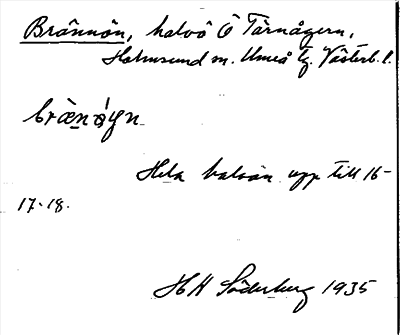 Brännön, halvö Ö Tärnågern,
Holmsund sn. Umeå tg. Västerb. l.
bræ̀nøyn
Hela halvön upp till 16-
17-18.
H H Söderberg 1935